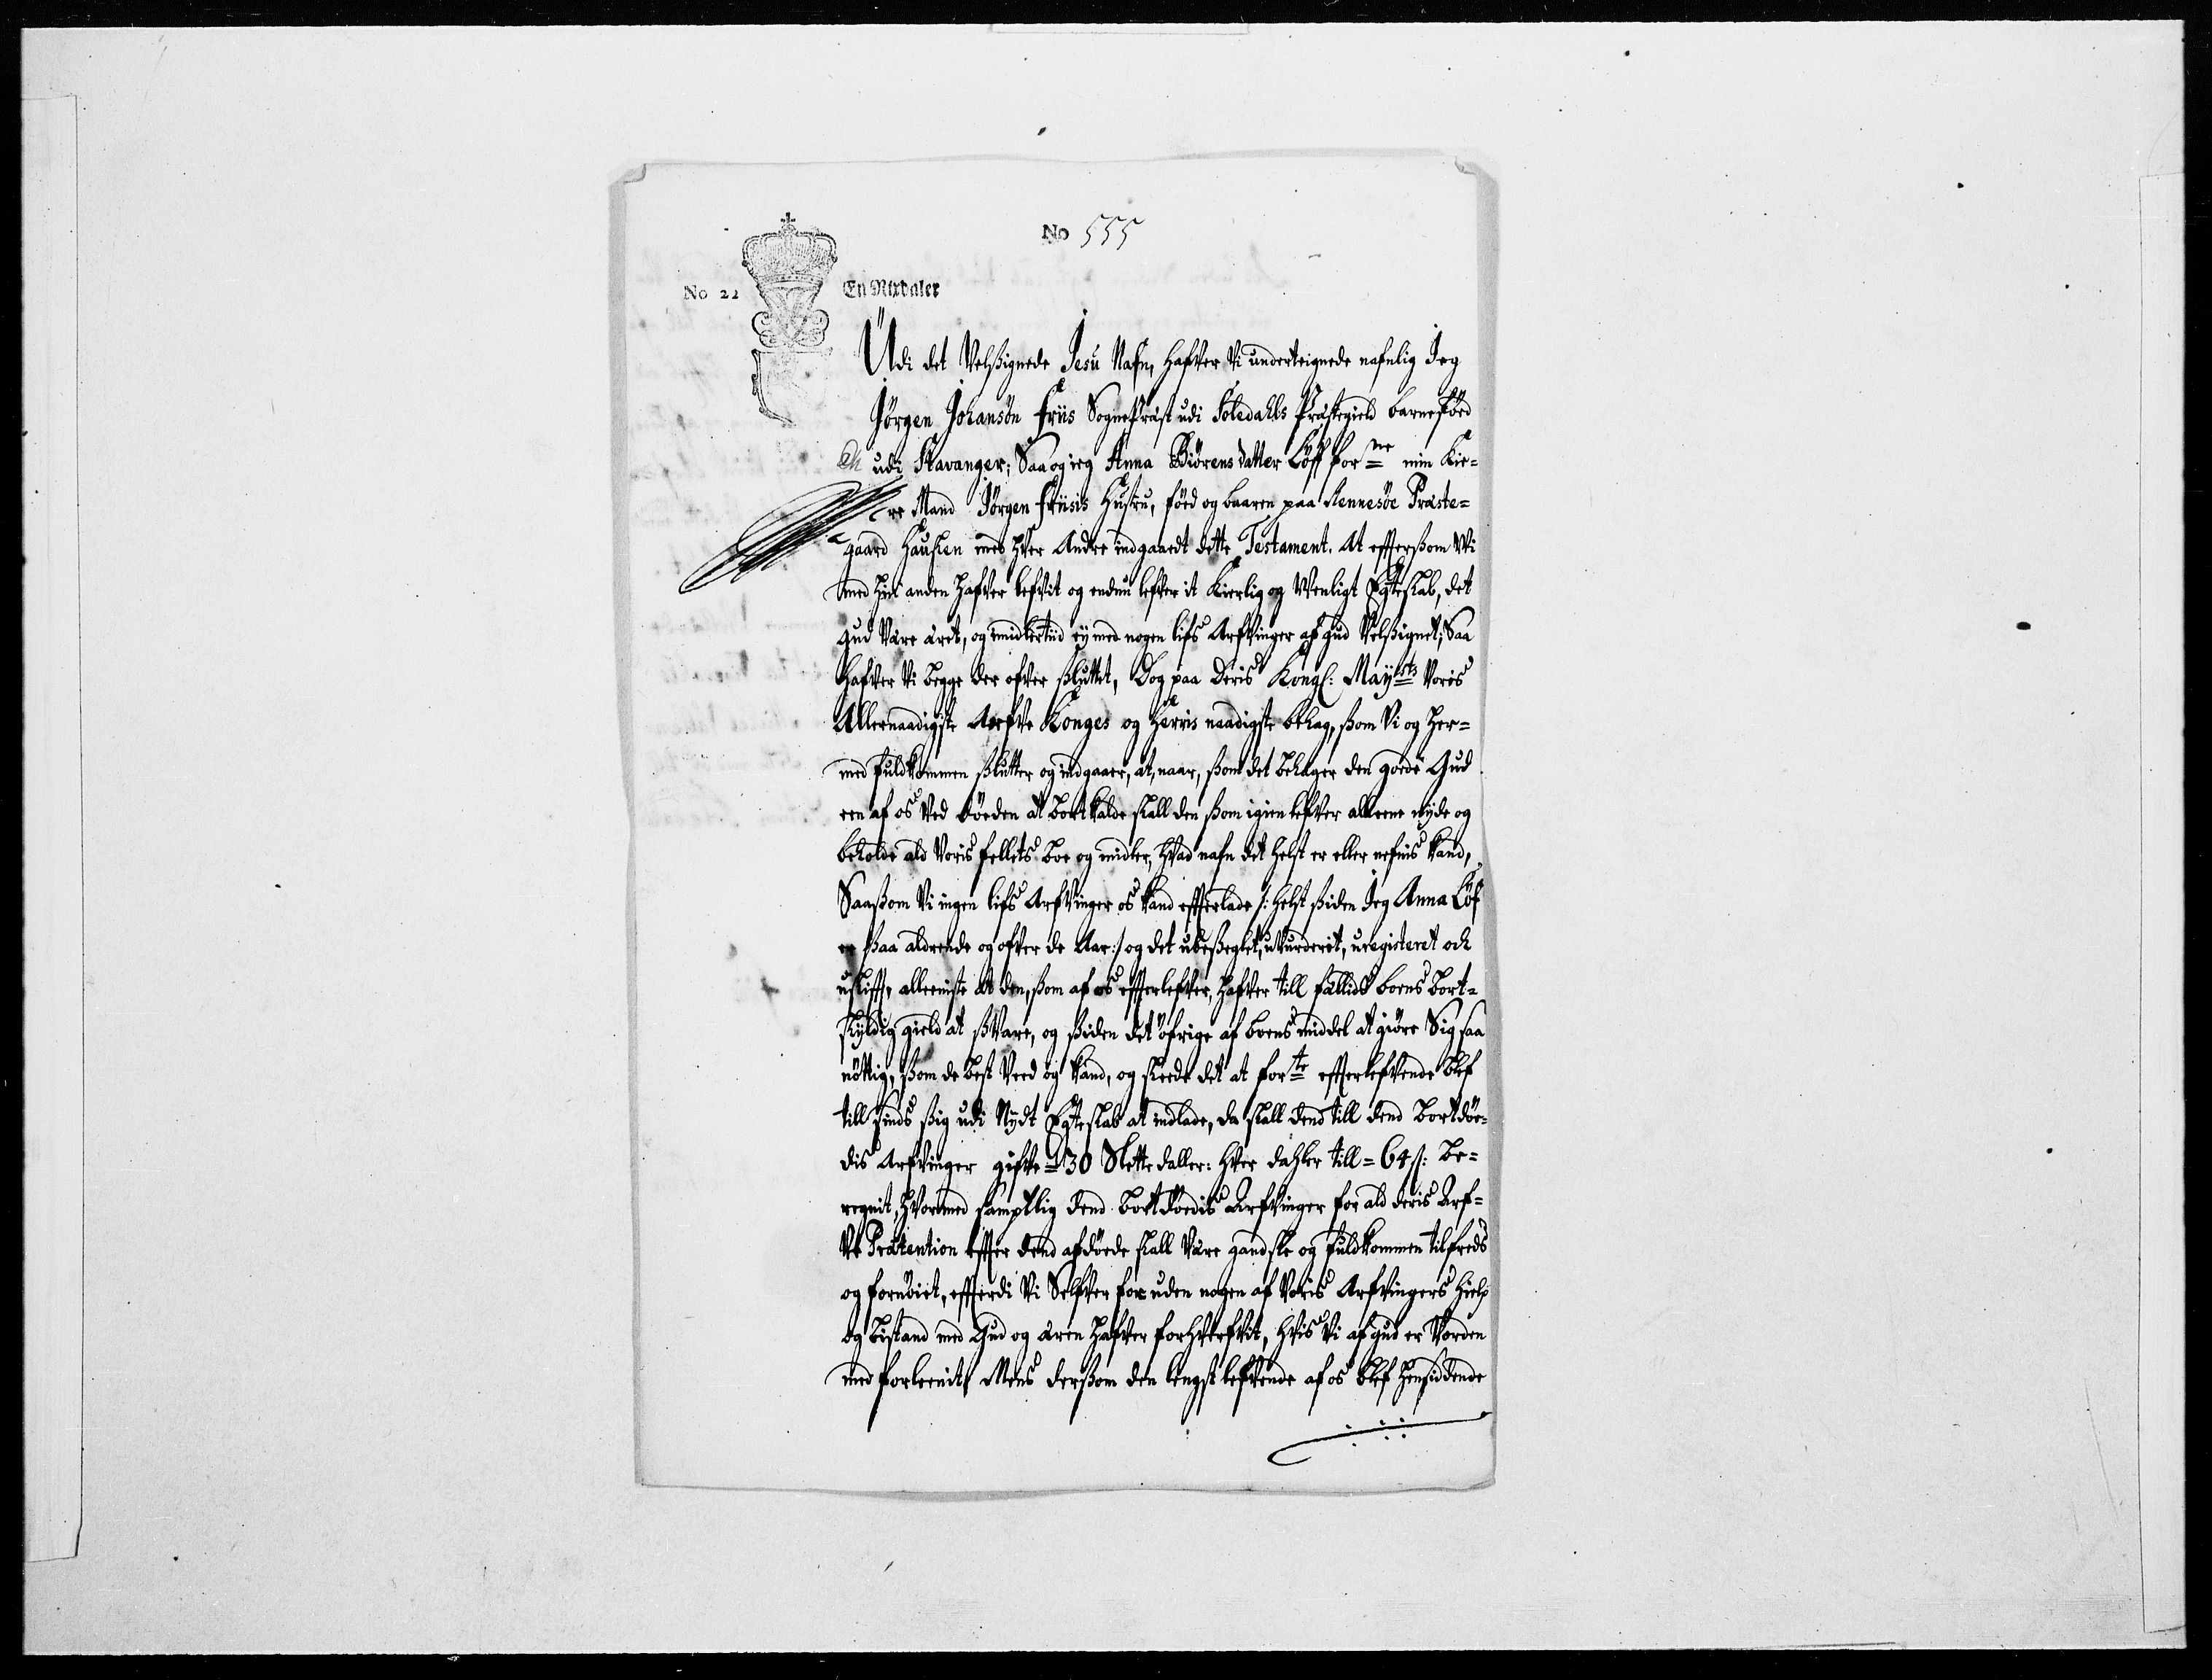 No 555
No 22
En Rixdaler
Udi det Velßignede Jesu Nafn, hafver Vi underteignede nafnlig Jeg
Jörgen Johansön Friis SognePræst udi Soledahls Præstegield barneföed
udi Stavanger; Saa og ieg Anna Biörensdatter Löff for<sup>ne</sup> min Kie-
re Mand Jörgen Friisis Hustru, föed og baaren paa Rennesöe Præste-
gaard Hafver med hver Andre indgaaedt dette Testament. At effterßom Wi
med hin anden hafver lefvit og endnu lefver it Kierlig og Venligt Egteskab, det
Gud Være æret, og imidlertiid ey med nogen lifs Arfvinger af Gud Velßignet; Saa
hafver Vi begge der ofver ßluttet, Dog paa Deris Kongl: May<sup>sts</sup> Voris
Allernaadigste Arfve Konges og Herris naadigste behag, ßom Vi og her-
med fuldkommen ßlutter og indgaaer, at, naar, ßom det behager den goede Gud
een af os Ved döeden at bort kalde skall den ßom igien lefver alleene nyde og
beholde ald Voris fellets boe og midler, hvad nafn det helst er eller nefnis kand,
Saaßom Vi ingen lifs Arfvinger os kand effterlade /: helst ßiden Jeg Anna Löf
er ßaa aldrende og ofver de Aar :/ og det ubeßeglet, uvurderit, uregisteret och
uskifft, alleeniste at den, ßom af os effterlefver, hafver till fællids boens bort-
skyldig gield at ßvare, og ßiden det öfrige af boens middel at giöre Sig saa
nöttig, ßom de best Veed og kand, og skeede det at for<sup>te</sup> effterlefvende blef
till sinds ßig udi Nydt Egteskab at indlade, da skall dend till dend bortdöe-
dis Arfvinger gifve = 130 Slette daller: hver dahler till = 64 s: be-
regnit, hvormed samptlig dend bortdöedis Arfvinger for ald deris Arf-
ve Prætention effter dend afdöede skall Være gandske og fuldkommen tilfreds
og fornöiet, effterdi Vi Selfver for uden nogen af Voris Arfvingers hielp
og bistand med Gud og æren hafver forhverfvit, hvis Vi af Gud er Vorden
med forleenit, Mens derßom den lengst lefvende af os blef hensiddende